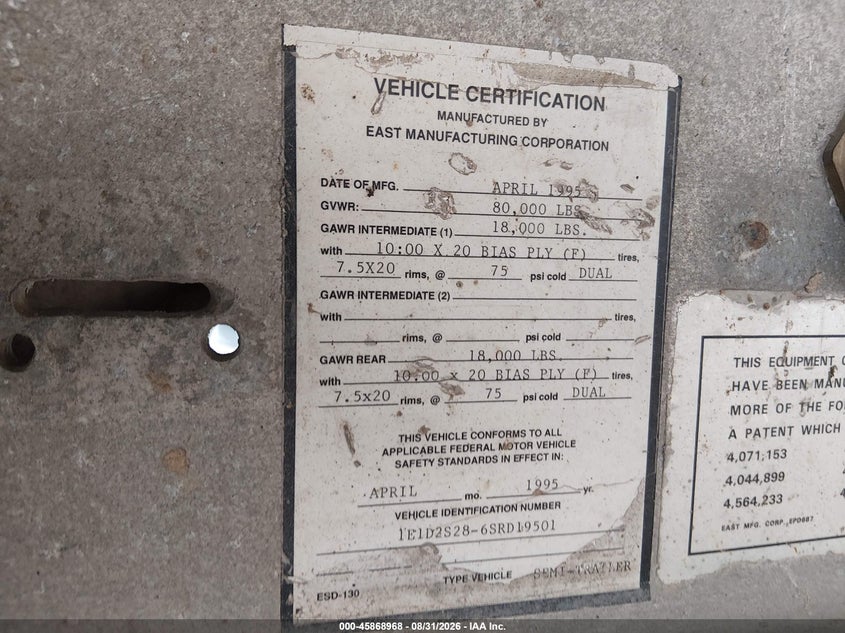 VEHICLE CERTIFICATION
MANUFACTURED BY
EAST MANUFACTURING CORPORATION
DATE OF MFG. APRIL 1995
GVWR: 80,000 LBS.
GAWR INTERMEDIATE (1) 18,000 LBS.
with 10:00 X 20 BIAS PLY (F) tires,
7.5X20 rims, @ 75 psi cold DUAL
GAWR INTERMEDIATE (2)
with tires,
rims, @ psi cold
GAWR REAR 18,000 LBS.
with 10.00 x 20 BIAS PLY (F) tires,
7.5x20 rims, @ 75 psi cold DUAL
THIS VEHICLE CONFORMS TO ALL
APPLICABLE FEDERAL MOTOR VEHICLE
SAFETY STANDARDS IN EFFECT IN:
APRIL mo. 1995 yr.
VEHICLE IDENTIFICATION NUMBER
1E1D2S28-6SRD19501
TYPE VEHICLE SEMI-TRAILER
ESD-130
THIS EQUIPMENT
HAVE BEEN
MORE OF THE
A PATENT WHICH
4,071,153
4,044,899
4,564,233
EAST MFG. CORP., EPD687
000-45868968 - 08/31/2026 - IAA Inc.